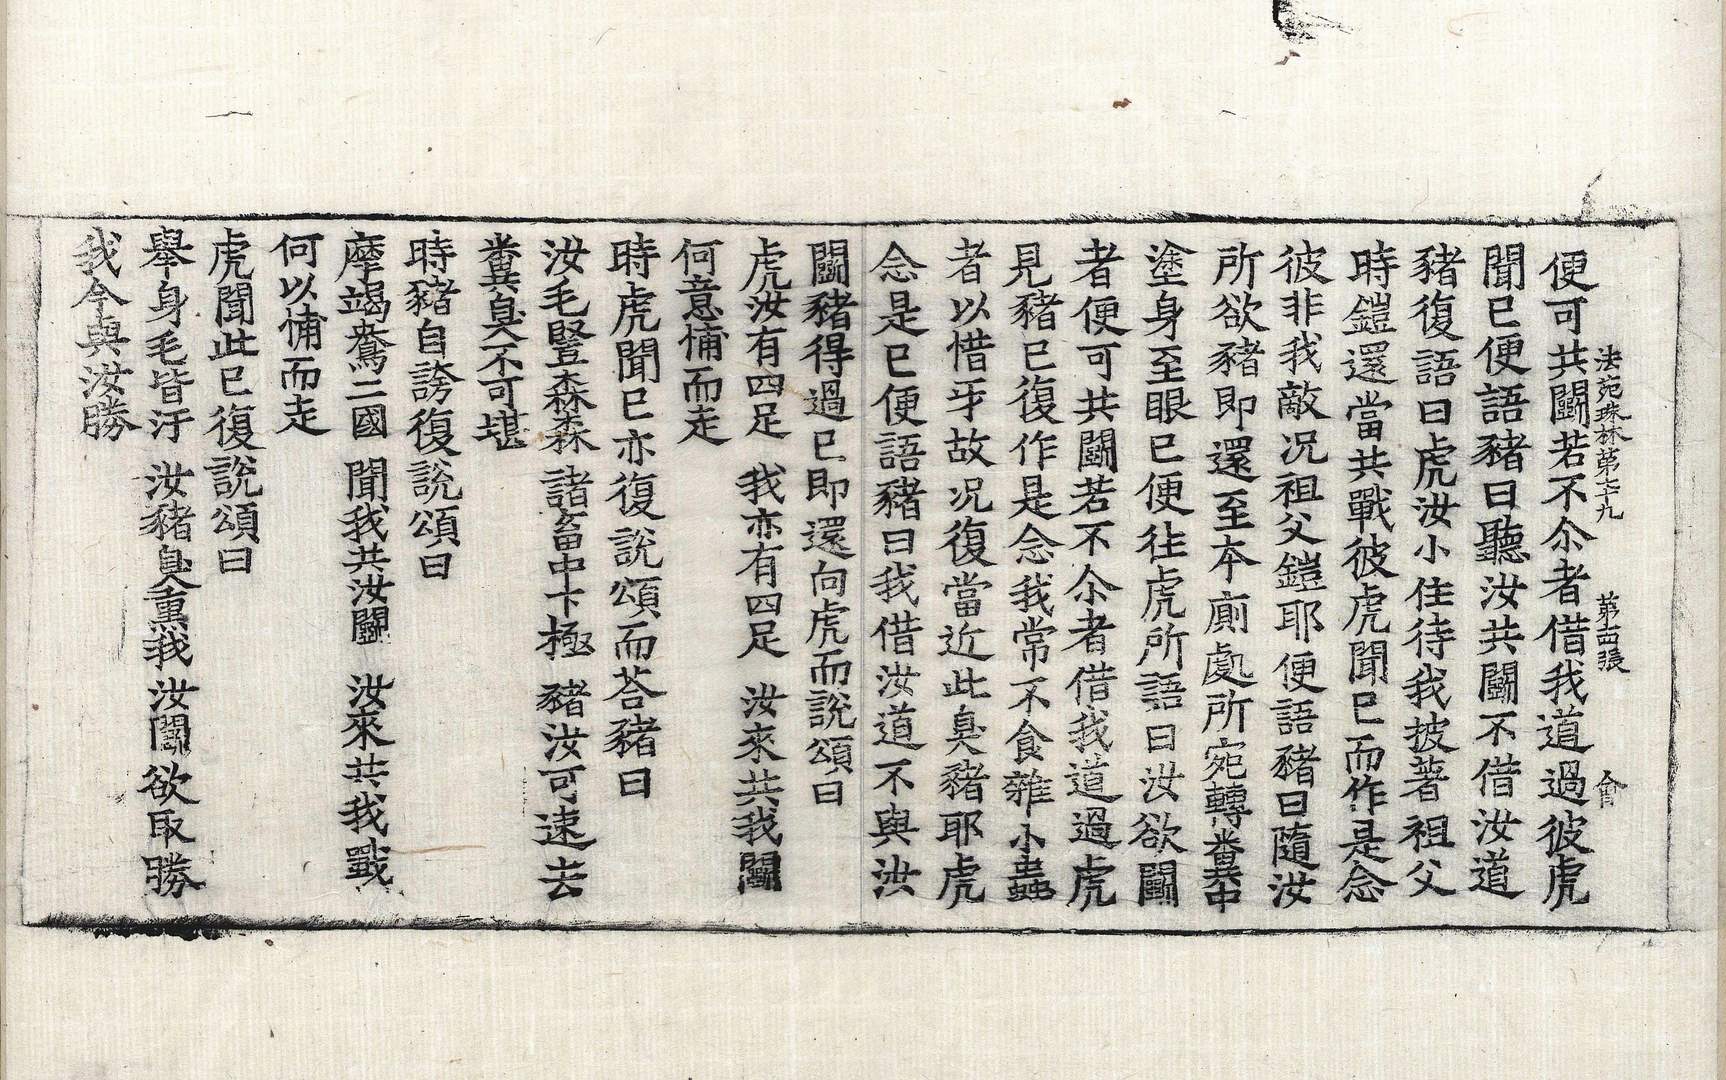 法苑珠林第七十九 第十四張 會
便可共鬪若不尒者借我道過彼虎
聞已便語豬曰聽汝共鬪不借汝道
豬復語曰虎汝小住待我披著祖父
時鎧還當共戰彼虎聞已而作是念
彼非我敵況祖父鎧耶便語豬曰隨汝
所欲豬即還至本廁處所宛轉糞中
塗身至眼已便往虎所語曰汝欲鬪
者便可共鬪若不尒者借我道過虎
見豬已復作是念我常不食雜小蟲
者以惜牙故況復當近此臭豬耶虎
念是已便語豬曰我借汝道不與汝
鬪豬得過已即還向虎而說頌曰
虎汝有四足 我亦有四足 汝來共我鬪
何意怖而走
時虎聞已亦復說頌而荅豬曰
汝毛豎森森 諸畜中下極 豬汝可速去
糞臭不可堪
時豬自誇復說頌曰
摩竭鴦二國 聞我共汝鬪 汝來共我戰
何以怖而走
虎聞此已復說頌曰
舉身毛皆汙 汝豬臭熏我 汝鬪欲取勝
我今與汝勝